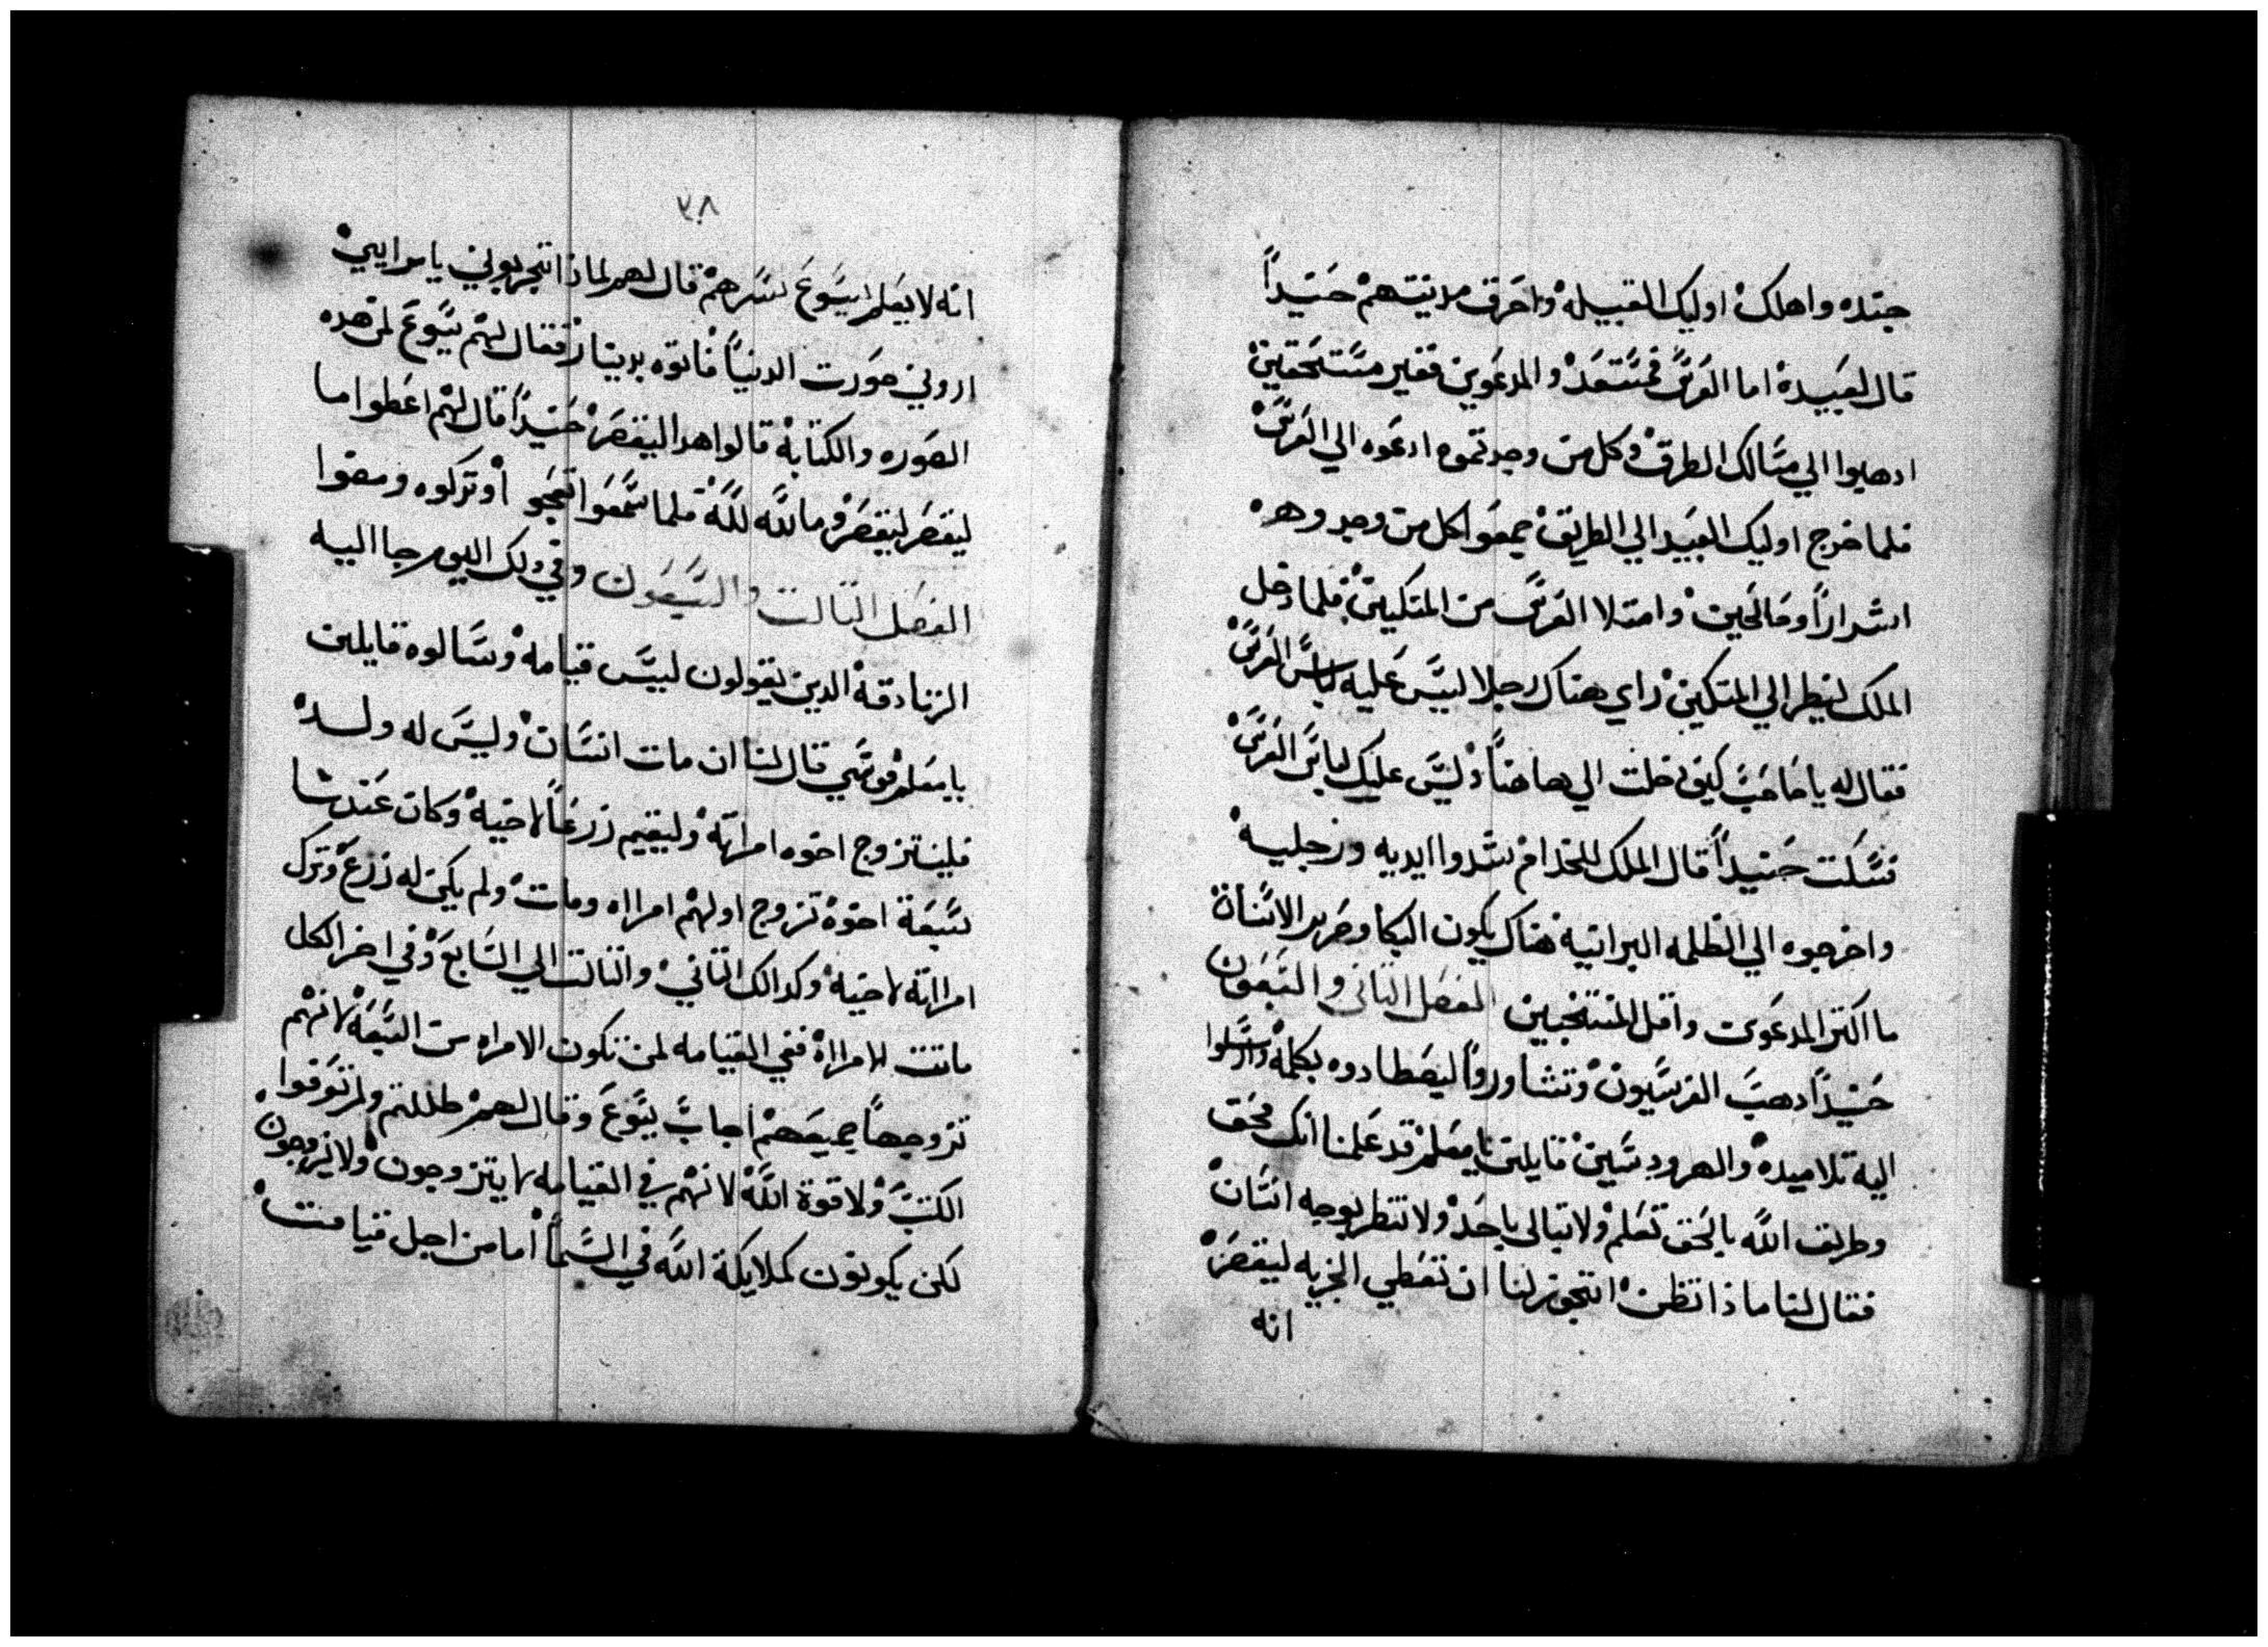 جنده واهلك اوليك القبيله واحرق مدينتهم حنيداً
قال لعبيده اما العرس فمستعد والمدعوين فغير مستحقين
ادهبوا الي مسالك الطرق وكل من وجدتموه ادعوه الي العرس
فلما خرج اوليك العبيد الي الطريق جمعوا كل من وجدوهم
اشراراً وصالحين وامتلا العرس من المتكيين فلما دخل
الملك لينظر الي المتكيين راي هناك رجلا ليس عليه لباس العرس
فقال له يا صاحب كيف دخلت الي هاهنا وليس عليك لباس العرس
فسكت حنيداً قال الملك للخدام شدوا ايديه ورجليه
واخرجوه الي الظلمه البرانيه هناك يكون البكا وصرير الاسنان
ما اكتر المدعوين واقل المنتخبين الفصل التاني والسبعون
حنيداً دهب الفرسيون وتشاوروا ليصطادوه بكلمه وارسلوا
اليه تلاميده والهرودسيين قايلين يا معلم قد علمنا انك محق
وطريق الله بالحق تعلم ولا تبالي باحد ولا تنظر بوجه انسان
فقال لنا ماذا تظن اتجوز لنا ان نعطي الجزيه ليقصر
انه
٣٨
انه لا يعلم يسوع بشرهم قال لهم لماذا تجربوني يا مراييين
اروني صورت الدنيا فاتوه بدينار فقال لهم يسوع لمن هده
الصوره والكتابة قالوا هدا ليقصر حنيداً قال لهم اعطوا ما
ليقصر ليقصر وما لله لله فلما سمعوا تعجبوا وتركوه ومضوا
الفصل التالت والسبعون وفي دلك اليوم جا اليه
الزنادقه الدين يقولون ليس قيامه وسالوه قايلين
يا معلم موسي قال لنا ان مات انسان وليس له ولد
فليتزوج اخوه امراته وليقيم زرعاً لاخيه وكان عندنا
سبعة اخوه تزوج اولهم امراه ومات ولم يكن له زرع وترك
امراته لاخيه وكدالك التاني والتالت الي السابع وفي اخر الكل
ماتت الامراه ففي القيامه لمن تكون الامراه من السبعه لانهم
تزوجها جميعهم اجاب يسوع وقال لهم ظللتم ولم تعرفوا
الكتب ولا قوة الله لانهم في القيامه لا يتزوجون ولا يزوجون
لكن يكونون كملايكة الله في السما اما من اجل قيامت